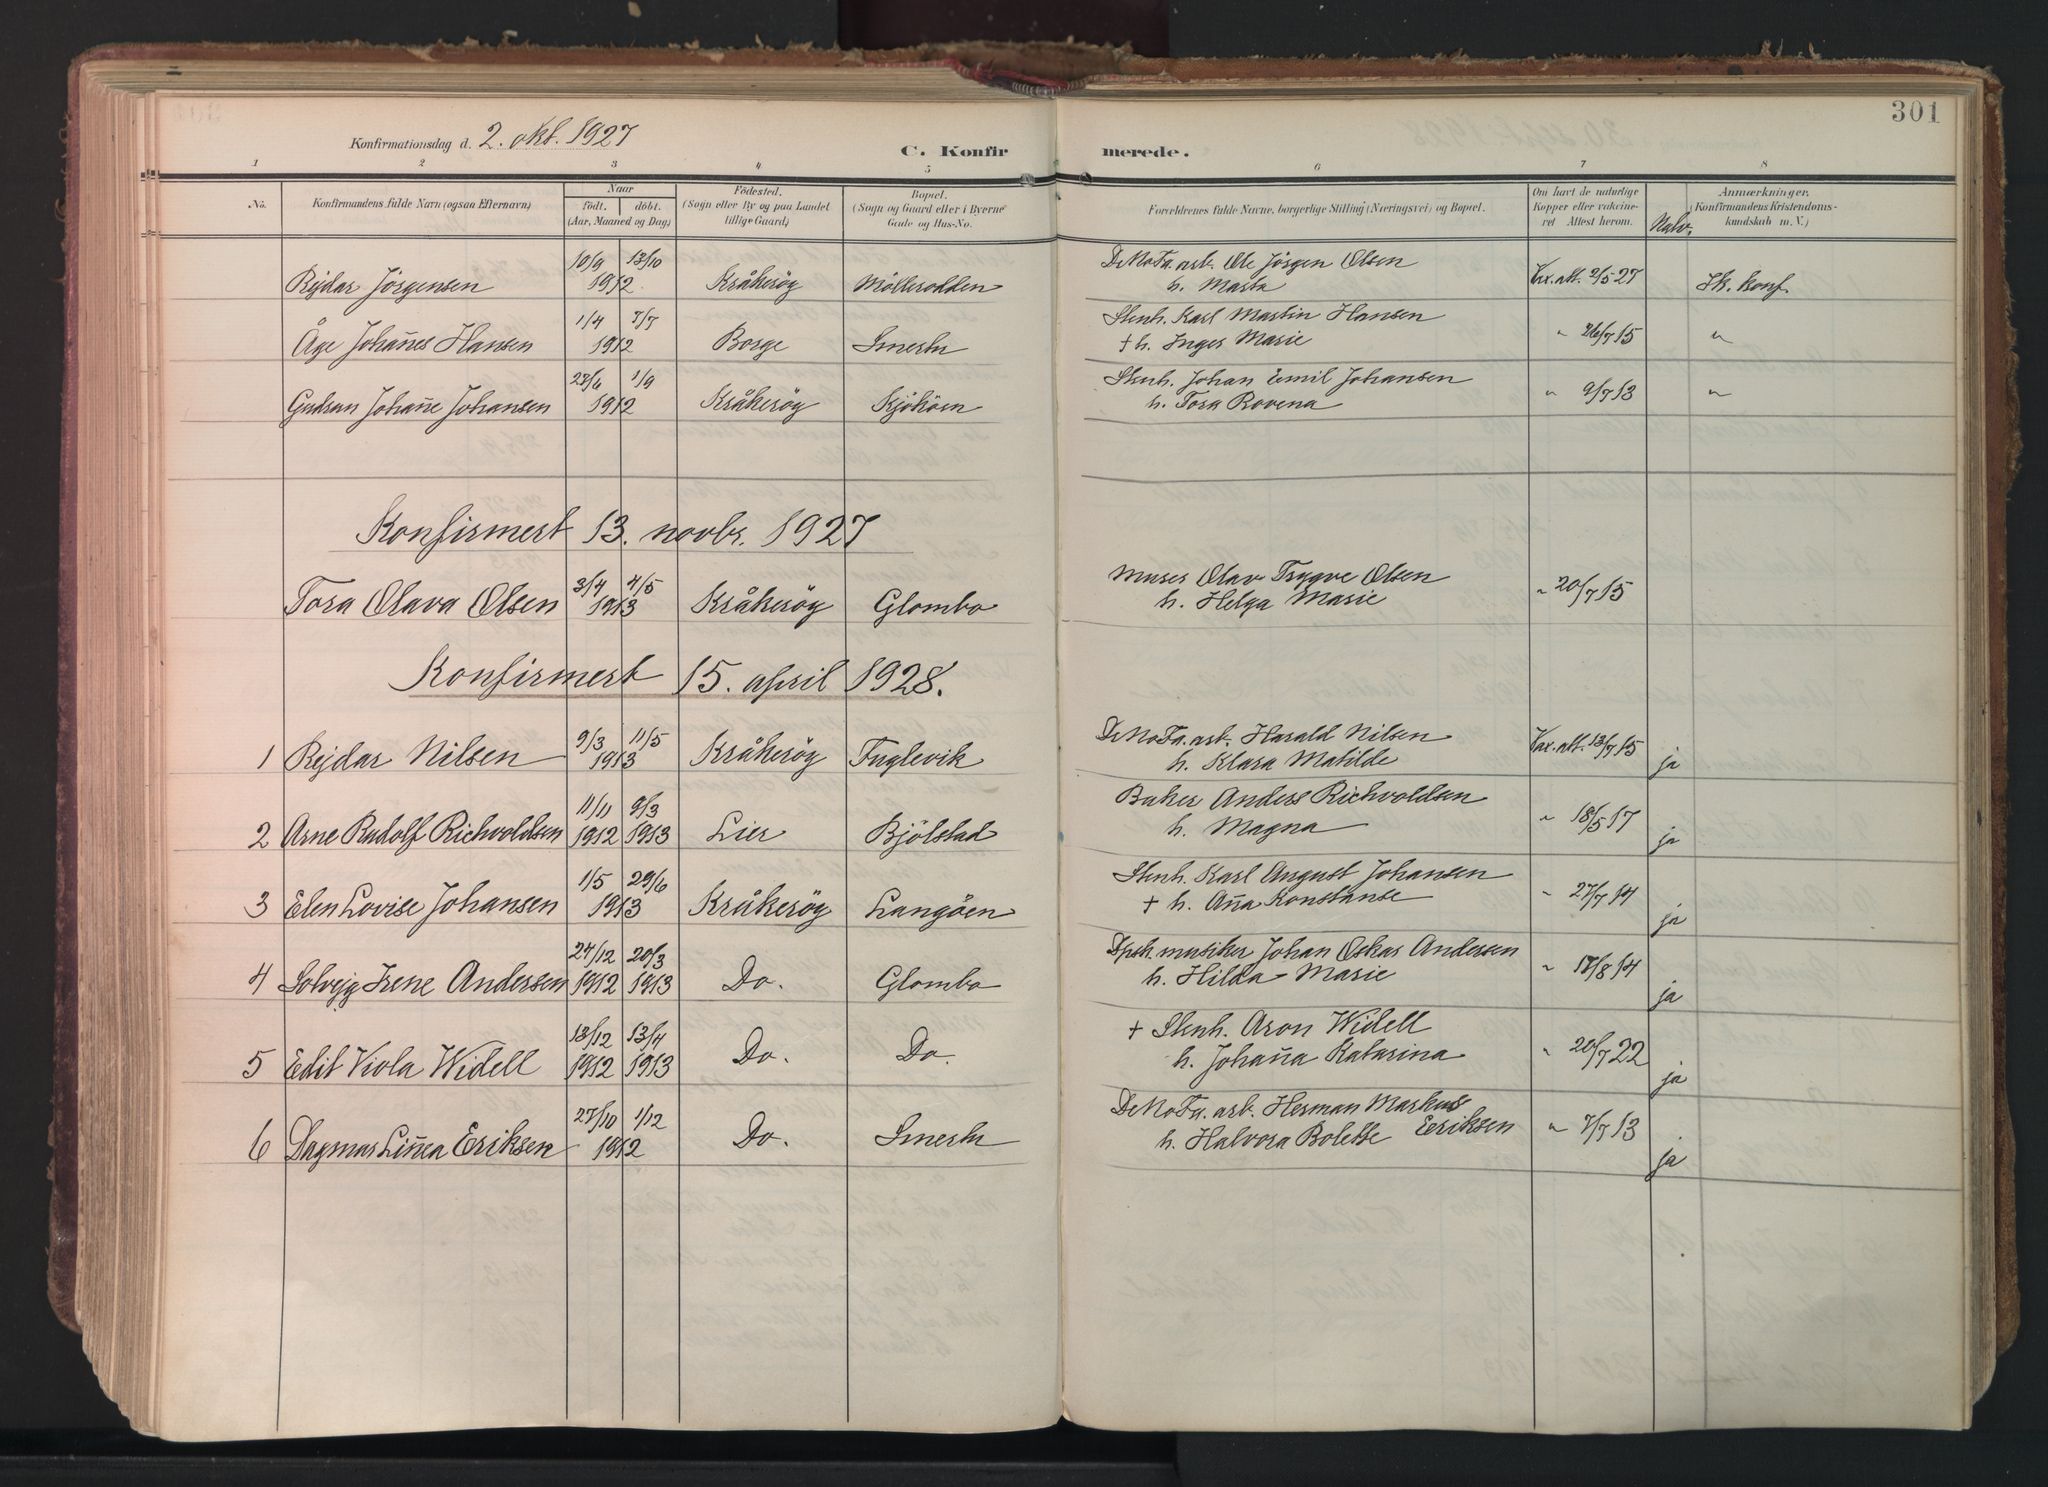 301
Konfirmationsdag d. 2. okt. 1927
C. Konfirmerede.
1 2 3 4 5 6 7 8
No.
Konfirmandens fulde Navn (ogsaa Efternavn)
Naar
födt. döbt.
(Aar, Maaned og Dag)
Födested.
(Sogn eller By og paa Landet
tillige Gaard)
Bopæl.
(Sogn og Gaard eller i Byerne
Gade og Hus-No.
Forældrenes fulde Navne, borgerlige Stilling (Næringsvei) og Bopæl.
Om havt de naturlige
Kopper eller vakcine-
ret Attest herom.
Anmærkninger.
(Konfirmandens Kristendoms-
kundskab m. V.)
10/9 13/10 DeNoFa. arb. Ole Jörgen Olsen
Rejdar Jörgensen 1912 Kråkeröy Möllerodden h. Marta Vax. att. 2/5 27 Sk. konf.
1/4 7/7 Stenh. Karl Martin Hansen
Åge Johan̄es Hansen 1912 Borge Smertu † h. Inger Marie " 26/7 15 "
22/6 1/9 Stenh. Johan Emil Johansen
Gudrun Johan̄e Johansen 1912 Kråkeröy Kjököen h. Tora Rovena " 9/7 13 "
Konfirmert 13. novbr. 1927
3/4 4/5 Murer Olav Trygve Olsen
Tora Olava Olsen 1913 Kråkeröy Glombo h. Helga Marie " 20/7 15
Konfirmert 15. april 1928.
9/3 11/5 DeNoFa. arb. Harald Nilsen
1 Rejdar Nilsen 1913 Kråkeröy Fuglevik h. Klara Matilde Vax. att. 13/7 15 ja
11/11 9/3 Baker Anders Richvoldsen
2 Arne Rudolf Richvoldsen 1912 1913 Lier Bjölstad h. Magna " 18/5 17 ja
1/5 29/6 Stenh. Karl August Johansen
3 Elen Lovise Johansen 1913 Kråkeröy Langöen † h. An̄a Konstanse " 27/7 14 ja
27/12 20/3 musiker Johan Oskar Andersen
4 Solvejg Irene Andersen 1912 1913 Do. Glombo h. Hilda Marie " 17/8 14 ja
13/12 13/4 † Stenh. Aron Widell
5 Edit Viola Widell 1912 1913 Do. Do. h. Johan̄a Katarina " 20/7 22 ja
27/10 1/12 DeNoFa. arb. Herman Markus
6 Dagmar Lin̄ea Eriksen 1912 Do. Smertu h. Halvora Bolette Eriksen " 7/7 13 ja